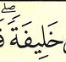 خَلِيفَةً ۖ